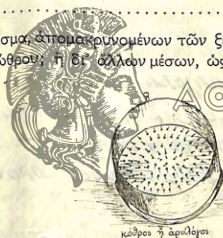 σμα, ἀπομακρυνομένων τῶν ξ
ώθρου, ἢ δι' ἄλλων μέσων, ὡς
ΑΘ
κόθρος ἢ ἀρυλόγος